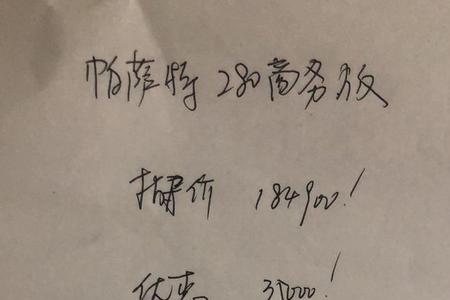 帕萨特 280商务版
指导价 184900!
优惠 35000!